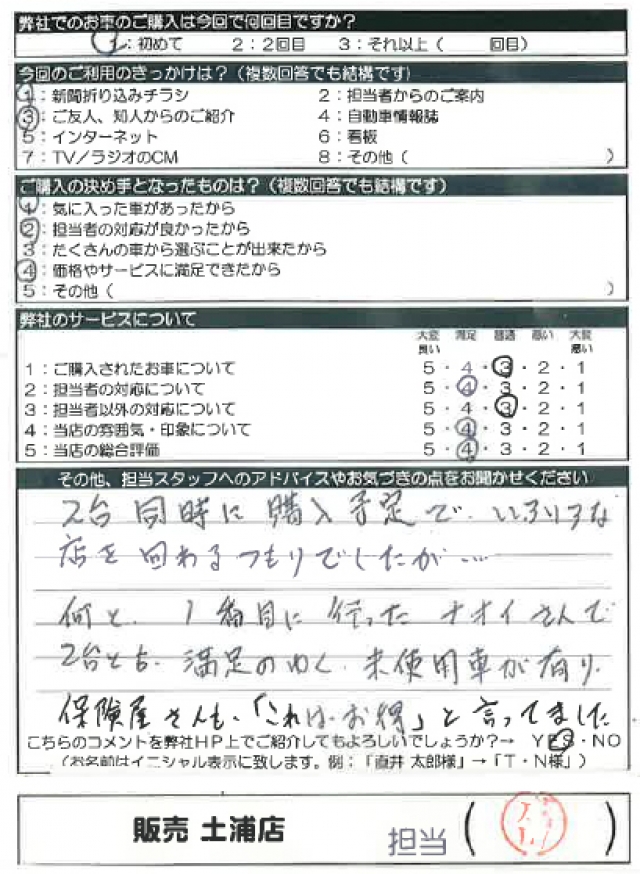 弊社でのお車のご購入は今回で何回目ですか？
1：初めて 2：2回目 3：それ以上（ 回目）
今回のご利用のきっかけは？（複数回答でも結構です）
1：新聞折り込みチラシ 2：担当者からのご案内
3：ご友人、知人からのご紹介 4：自動車情報誌
5：インターネット 6：看板
7：TV／ラジオのCM 8：その他（ ）
ご購入の決め手となったものは？（複数回答でも結構です）
1：気に入った車があったから
2：担当者の対応が良かったから
3：たくさんの車から選ぶことが出来たから
4：価格やサービスに満足できたから
5：その他（ ）
弊社のサービスについて
大変良い 満足 普通 悪い 大変悪い
1：ご購入されたお車について 5・4・3・2・1
2：担当者の対応について 5・4・3・2・1
3：担当者以外の対応について 5・4・3・2・1
4：当店の雰囲気・印象について 5・4・3・2・1
5：当店の総合評価 5・4・3・2・1
その他、担当スタッフへのアドバイスやお気づきの点をお聞かせください
2台同時に購入予定で、いろいろな
店を回わるつもりでしたが…
何と、1番目に行ったナオイさんで
2台とも、満足のゆく、未使用車が有り、
保険屋さんも、「これは、お得」と言ってました
こちらのコメントを弊社HP上でご紹介してもよろしいでしょうか？→ YES・NO
（お名前はイニシャル表示に致します。例：「直井 太郎様」→「T・N様」）
販売 土浦店 担当（ ）